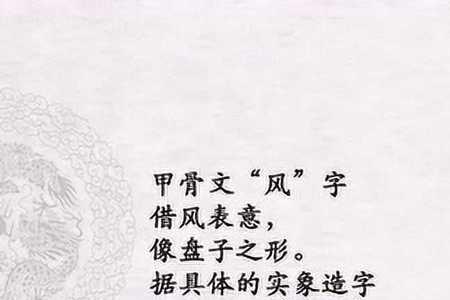 甲骨文“风”字
借风表意，
像盘子之形。
据具体的实象造字